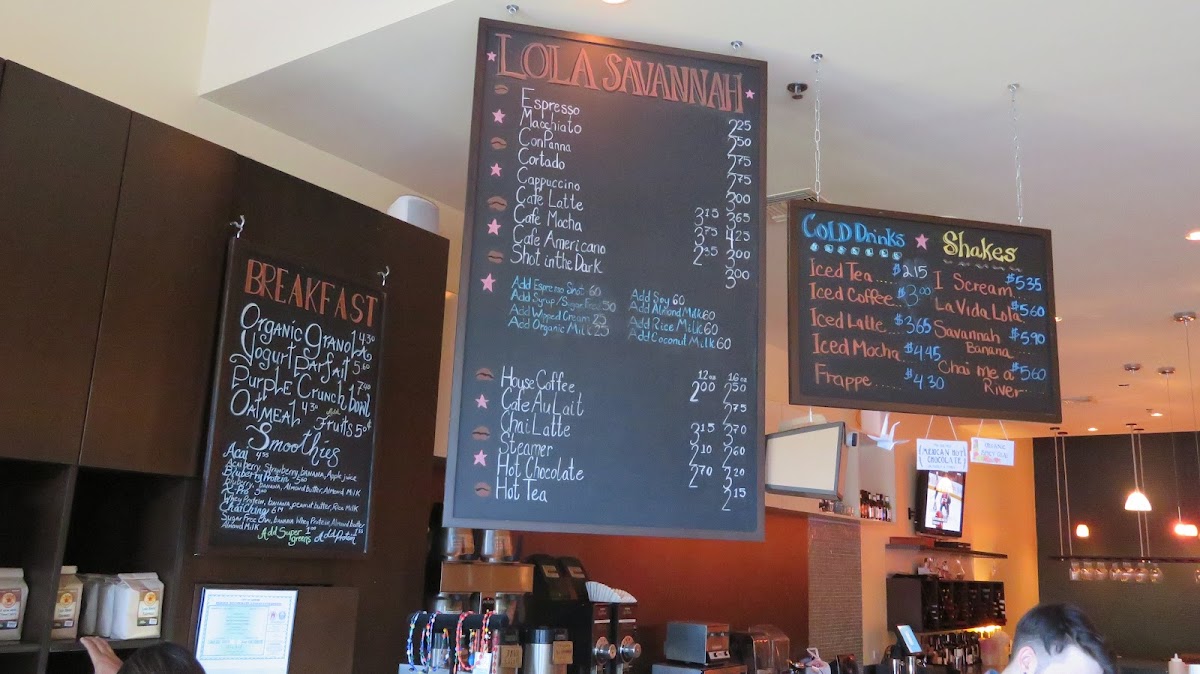 BREAKFAST
Organic Granola 4.30
Yogurt Parfait 5.60
Purple Crunch bowl 7.40
Oatmeal 4.30 Add Fruits .50¢
Smoothies
Acai 4.95
Acai berry, Strawberry, banana, Apple juice
BlueberryProtein 5.60
Blueberry, banana, Almond butter, Almond Milk
Whey Protein, banana, peanut butter, Rice Milk
Chai Ching
Sugar Free Chai, banana Whey Protein, Almond butter
Almond Milk
Add Super greens Add Protein
LOLA SAVANNAH
Espresso 2.25
Macchiato 2.50
ConPanna 2.75
Cortado 2.75
Cappuccino 3.00
Cafe Latte 3.15 3.65
Cafe Mocha 3.75 4.25
Cafe Americano 2.35 3.00
Shot in the Dark 3.00
Add Espresso Shot .60 Add Soy .60
Add Syrup/Sugar Free .50 Add Almond Milk .60
Add Whiped Cream .25 Add Rice Milk .60
Add Organic Milk .25 Add Coconut Milk .60
12oz 16oz
House Coffee 2.00 2.50
Cafe Au Lait 2.75
Chai Latte 3.15 3.70
Steamer 2.10 2.60
Hot Chocolate 2.70 3.20
Hot Tea 2.15
COLD Drinks Shakes
Iced Tea $2.15 I Scream $5.35
Iced Coffee $3.00 La Vida Lola $5.60
Iced Latte $3.65 Savannah Banana $5.90
Iced Mocha $4.45 Chai me a River $5.60
Frappe $4.30
MEXICAN HOT
CHOCOLATE